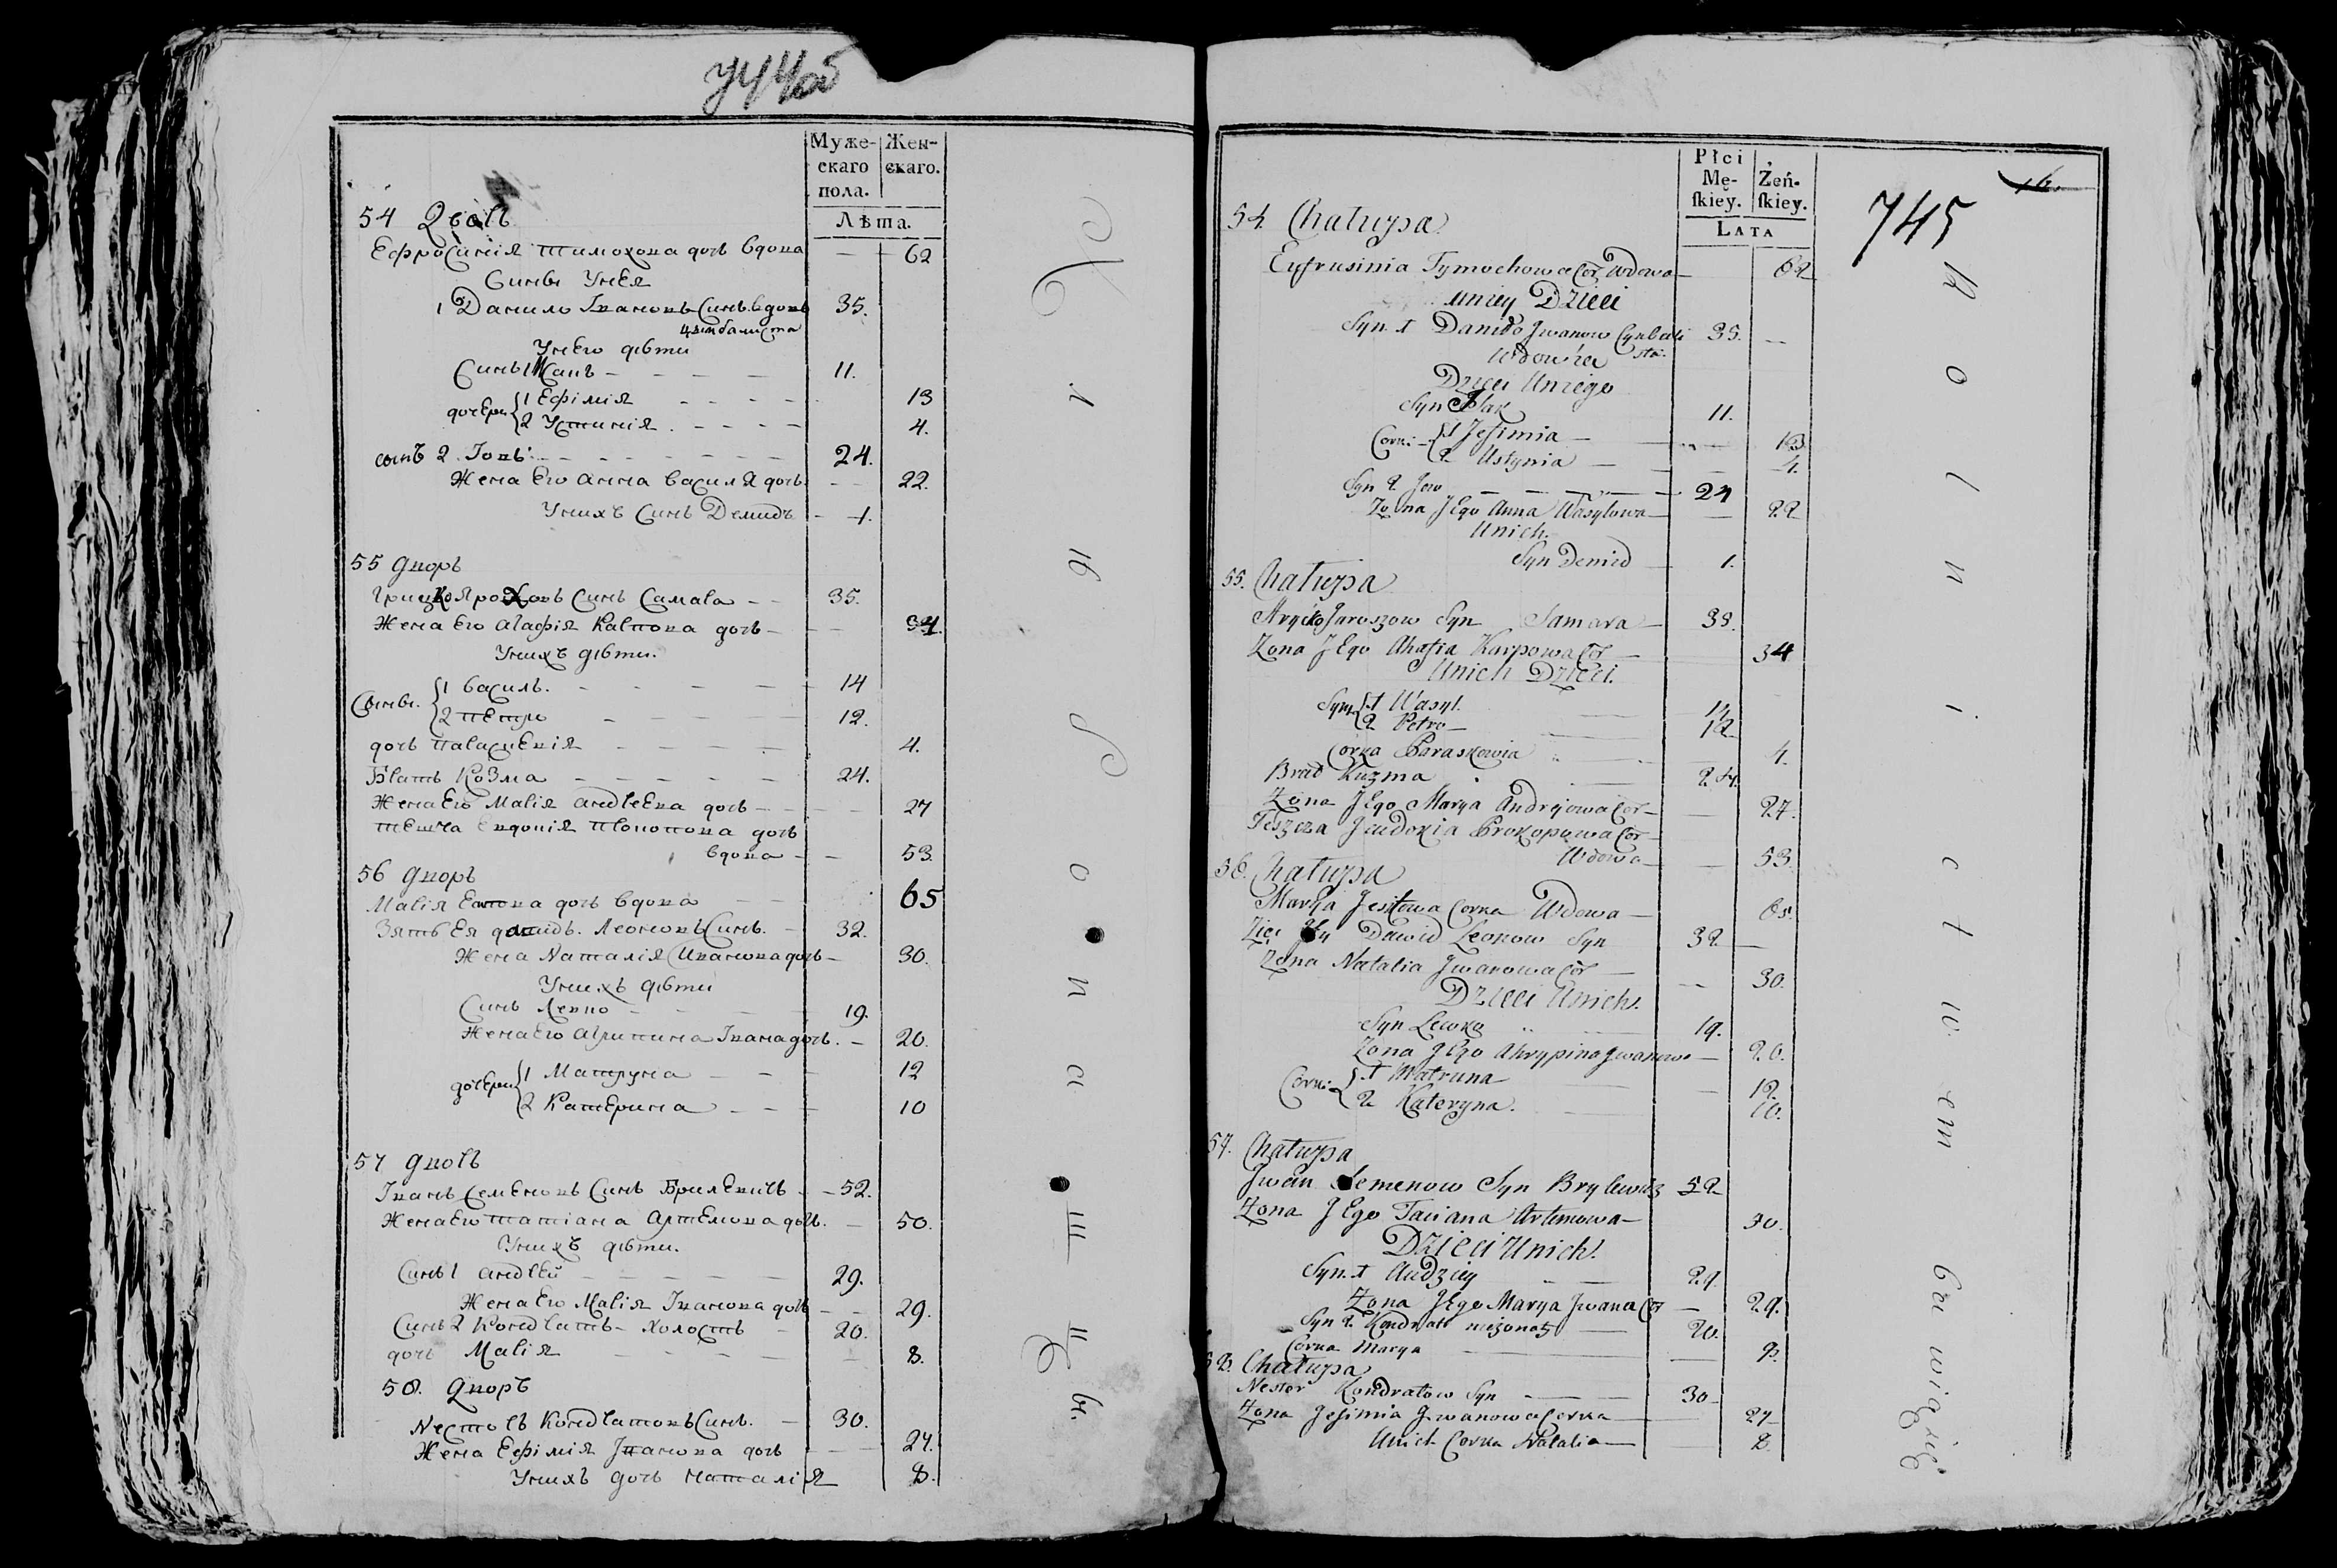 744об
Муже-
скаго
пола.
Жен-
скаго.
Лѣта.
54 Дворъ
Ефросинія Тимохова дочь вдова — 62
Сины Унея
1 Данило Івановъ Синъ вдовъ 35.
цымбалиста
Унего дѣти
Синъ 1 Исакъ 11.
дочери 1 Ефимія 13
2 Устинія 4.
сынъ 2. Іовъ 24.
Жена Его Анна Василя дочь 22.
Унихъ Синъ Демидъ 1.
55 дворъ
Грицко Ярошовъ Синъ Самара 35.
Жена Его Агафія Карпова дочь 34.
Унихъ дѣти.
Сыны. 1 Василь. 14
2 Петро 12.
дочь Параскевія 4.
Братъ Козма 24.
Жена Его Марія Андреева дочь 27
Тешча Евдокія Прокопова дочь
вдова 53.
56 дворъ
Марія дочь вдова 65
Зять Ея давидъ. Леоновъ Синъ. 32.
Жена Наталія Иванова дочь 30.
Унихъ дѣти
Синъ Левко 19.
Жена Его Агрипина Івана дочь. 20.
дочери 1 Матруна 12
2 Катерина 10
57 дворъ
Іванъ Семеновъ Синъ Брилевичъ 52.
Жена Его Татіана Артемова дочь. 50.
Унихъ дѣти.
Синъ 1 Андрей 29.
Жена Его Марія Іванова дочь 29.
Синъ 2 Кондратъ холостъ 20.
дочь Марія 8.
58. дворъ
Несторъ Кондратовъ Синъ. 30.
Жена Ефимія Іванова дочь 27.
Унихъ дочь Наталія 8.
Płci
Mę-
ſkiey.
Żeń-
ſkiey.
LATA
745
16.
54. Chałupa
Eufrusinia Tymochowa Cor. Wdowa 62
Uniey Dzieci
Syn 1 Daniło Jwanow Cynbali 35.
sta.
Wdowiec
Dzieci Uniego
Syn 1 Isak 11.
Corki 1 Jefimia 13
2 Ustynia 4.
Syn 2 Jow 24
Zona Jego Anna Wasylowa 22
Unich.
Syn Demid 1.
55. Chałupa
Hryćko Jaroszow Syn Samara 35.
Zona Jego Ahafia Karpowa Cor 34
Unich Dzieci.
Syny 1 Wasyl. 14
2 Petro 12
Corka Paraskewia 4.
Brat Kuzma 24.
Zona Jego Marya Andrejowa Cor 27.
Teszcza Jewdokia Prokopowa Cor
Wdowa 53.
56. Chałupa
Marya Corka Wdowa 65.
Zięć Jey Dawid Leonow Syn 32
Zona Natalia Jwanowa Cor 30.
Dzieci Unich.
Syn Lewko 19.
Zona Jego Ahrypina Jwanowa 20.
Corki 1 Matruna 12.
2 Kateryna. 10.
57. Chałupa
Jwan Semenow Syn Brylewicz 52
Zona Jego Taciana Artimowa 50.
Dzieci Unich.
Syn. 1 Andziey 29.
Zona Jego Marya Jwana Cor 29.
Syn 2. Kondrat niżonaty 20.
Corka Marya 8.
58. Chałupa
Nester Kondratow Syn 30
Zona Jefimia Jwanowa Corka 27
Unich Corka Natalia 8